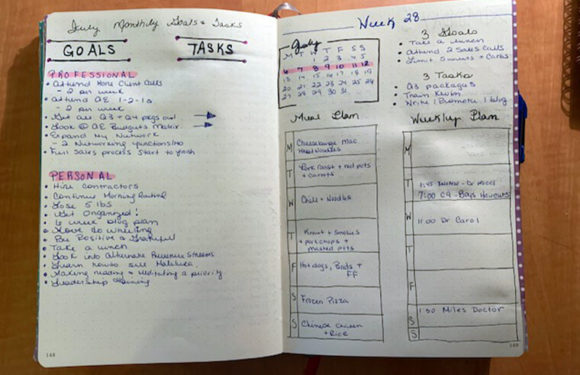 July Monthly Goals & Tasks
GOALS
TASKS
PROFESSIONAL
• Attend More Client Calls
- 2 per week
• Attend AE 1-2-1s
- 2 per week
• Get all Q3 + Q4 pkgs out
• Look @ AE Budgets Matrix
• Expand my Network
- 2 Networking functions/mo
• Full Sales process start to finish
PERSONAL
• Hire Contractors
• Continue Morning Routine
• Lose 5 lbs
• Get Organized!
• 6 week blog plan
• Move do writing
• Be Positive & Grateful
• Take a lunch
• Look into Alternate Revenue Streams
• Learn how to
• Making reading & meditating a priority
• Leadership training
148
Week 28
July
M T W T F S S
1 2 3 4 5
6 7 8 9 10 11 12
13 14 15 16 17 18 19
20 21 22 23 24 25 26
27 28 29 30 31
3 Goals
• Take a lunch
• Attend 2 Sales Calls
• Limit Sweets + Carbs
3 Tasks
• Q3 packages
• Train
• Write / Promote 1 blog
Meal Plan
M Cheeseburger Mac
T Pork Roast + red pots
+ carrots
W Chili + Noodles
T
+ porkchops +
mashed pots
F Hot dogs, Buds +
FF
S Frozen Pizza
S Chinese Chicken
+ Rice
Weekly Plan
M
T
7:00 C9 - Bays Haircuts
W 11:00 Dr Carol
T
F
1:50 Miles Doctor
S
S
149